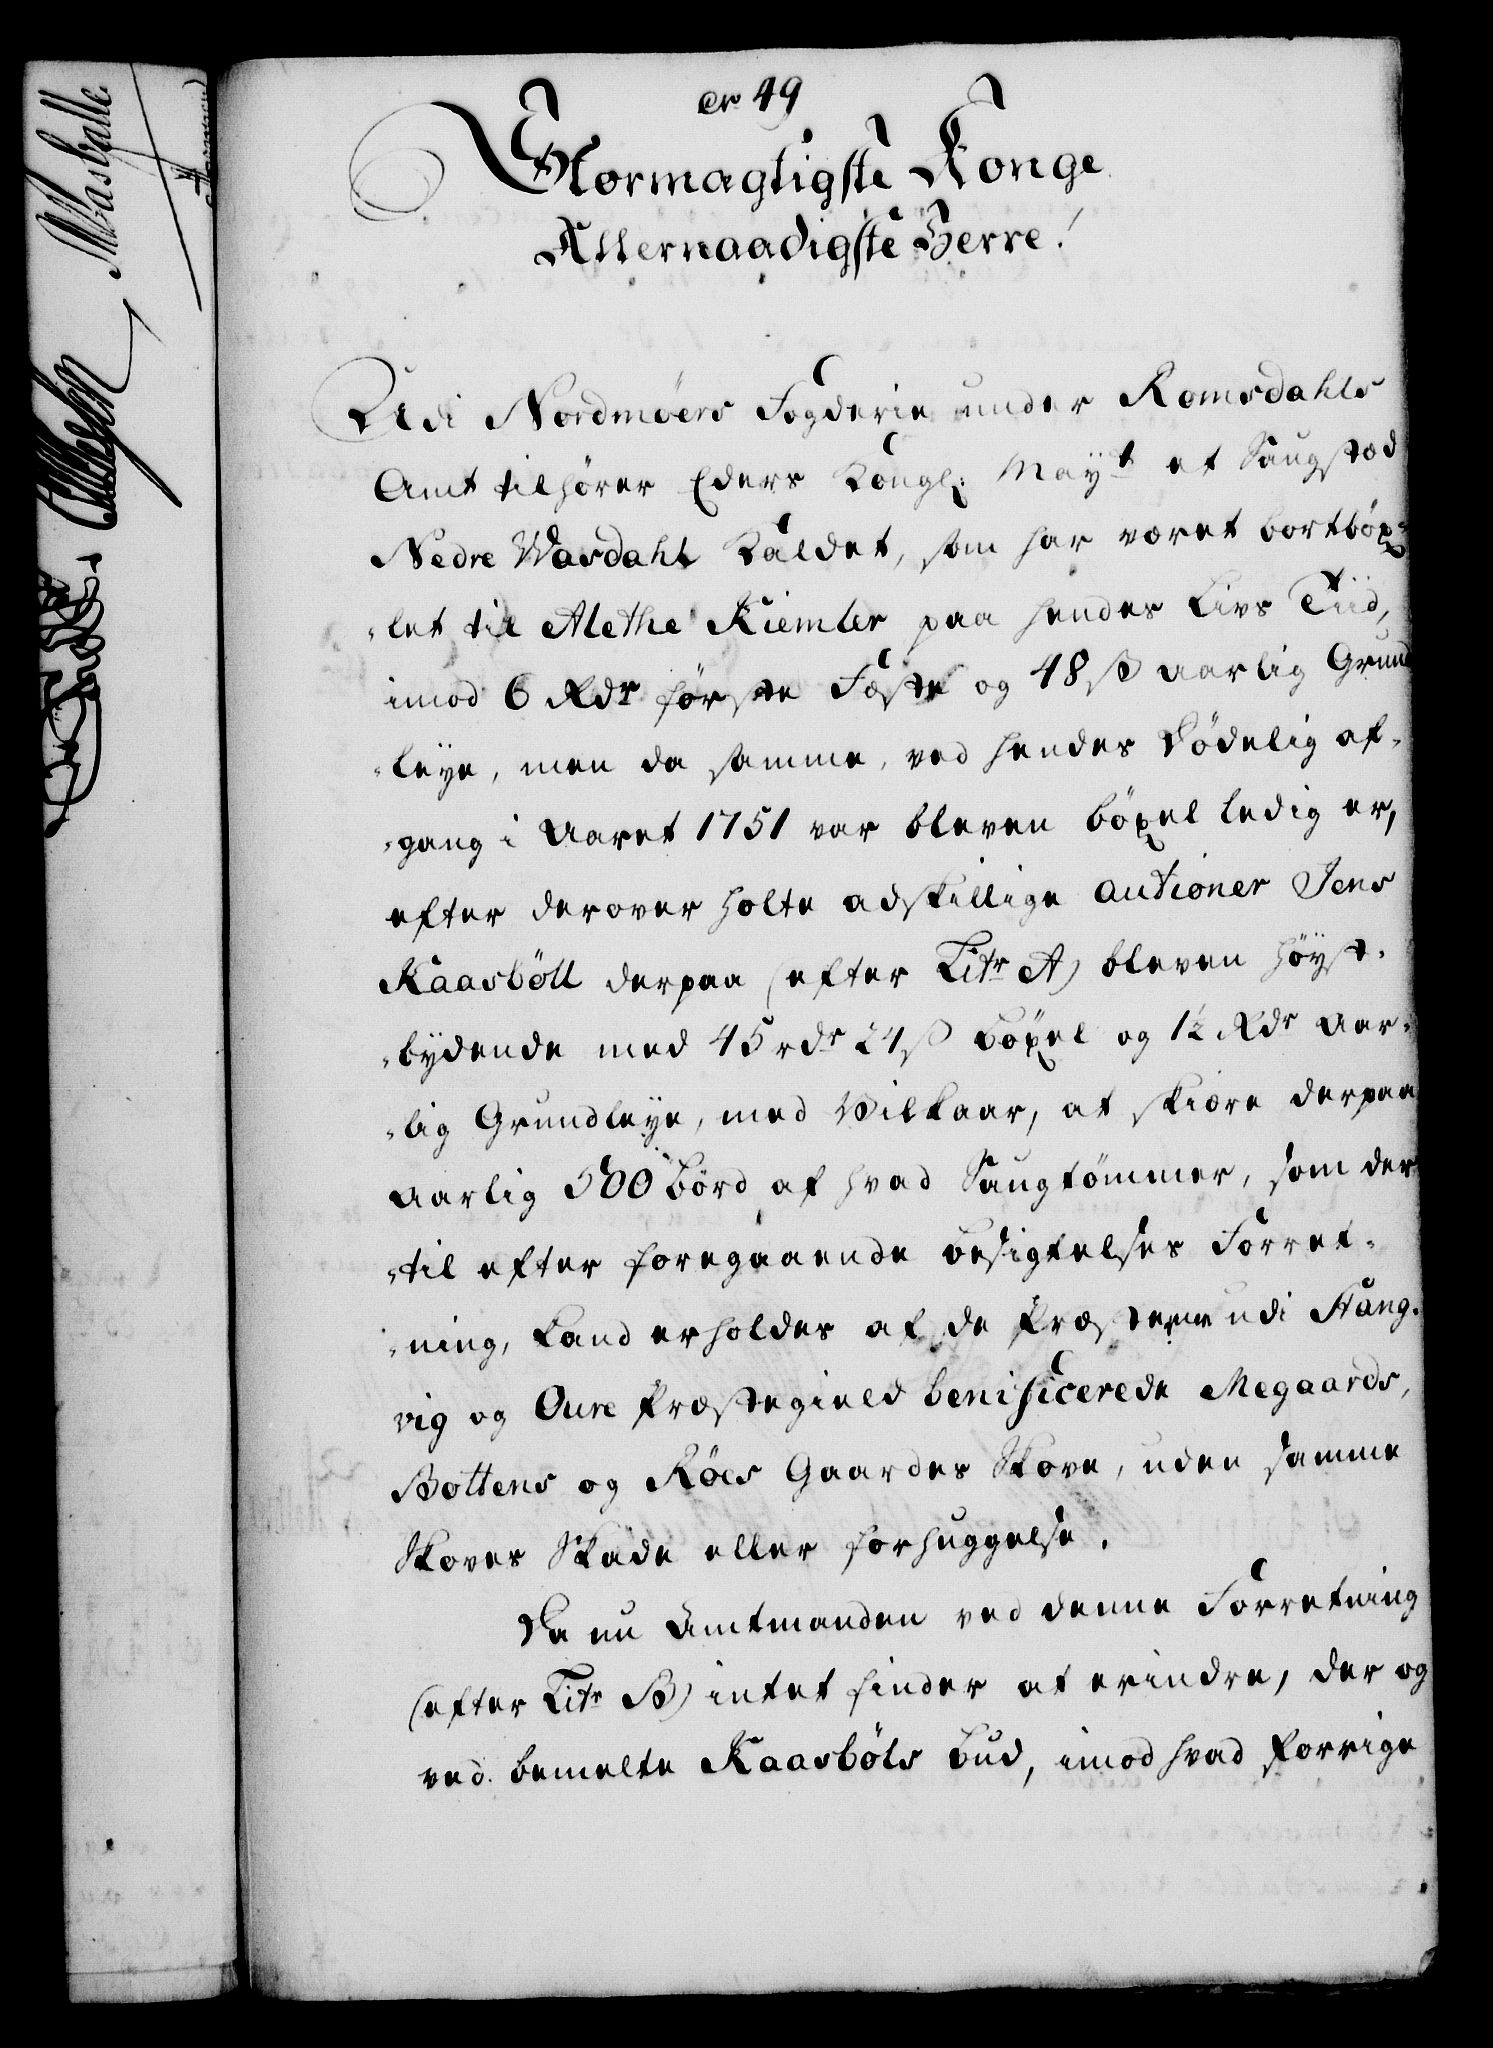 N 49
Stormægtigste Konge
Allernaadigste Herre!
Udi Nordmøers Fogderie under Romsdahls
Amt tilhører Eders Kongl: Mayt et Saugstæd
Nedre Wasdahl kaldet, som har været bortböx¬
„let til Alethe Kiemler paa hendes Livs Tiid,
imod 6 Rdr første Fæste og 48 ß aarlig Grund
„leye, men da samme, ved hendes dödelig af¬
„gang i Aaret 1751 var bleven böxel ledig er,
efter derover holte adskillige auctioner Jens
Kaasböll derpaa (efter Litr A) bleven høyst¬
„bydende med 45 rdr 24 ß böxel og 1½ Rdr Aar¬
„lig Grundleye, med Vilkaar, at skiære derpaa
aarlig 500 börd af hvad Saugtömmer, som der
„til efter foregaaende besigtelses Forret¬
„ning, kand erholdes af de Præsterne udi Stang¬
vig og Oure Præstegield benificerede Megaards,
Bottens og Röes Gaardes Skove, uden samme
Skoves Skade eller forhuggelse.
Da nu Amtmanden ved denne Forretning
(efter Litr B) intet finder at erindre, der og
ved bemelte Kaasböls bud, imod hvad forrige